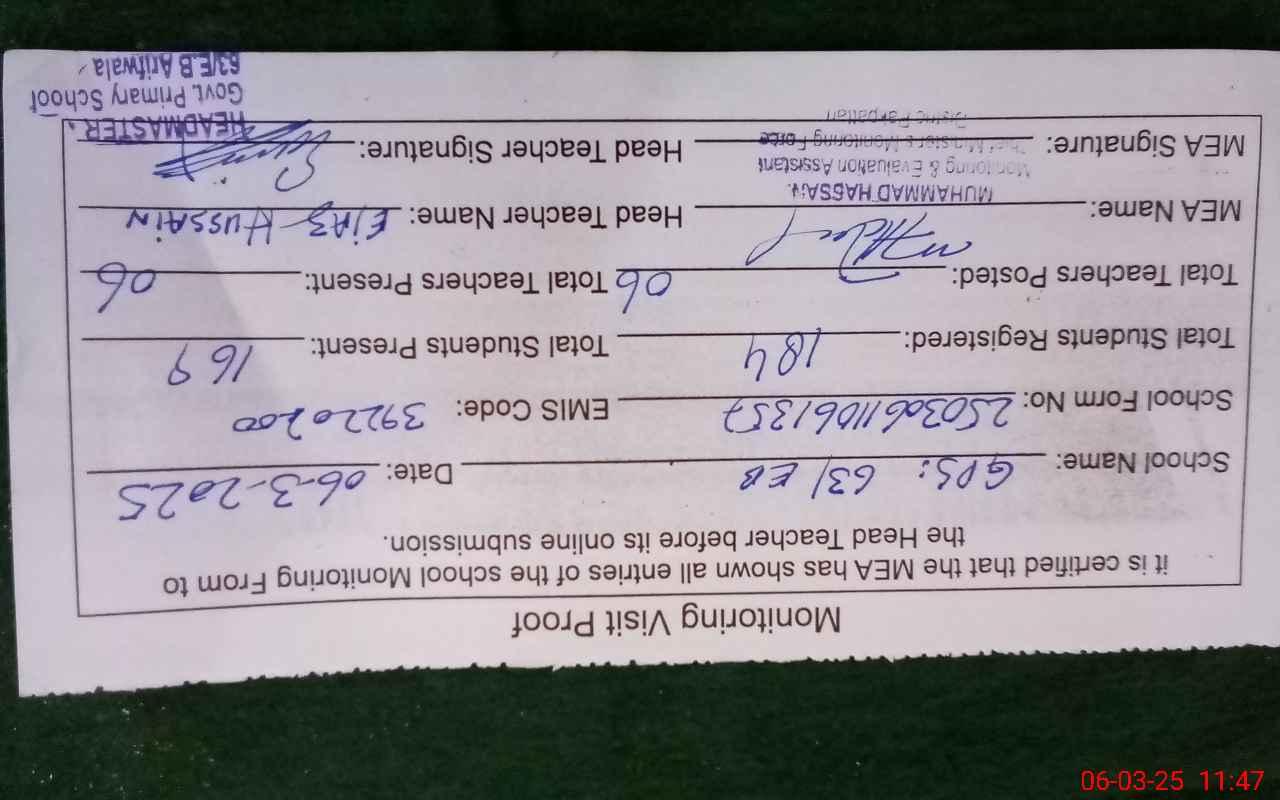 Monitoring Visit Proof
it is certified that the MEA has shown all entries of the school Monitoring From to
the Head Teacher before its online submission.
School Name: GPS: 63/EB Date: 06-3-2025
School Form No: 25030611061357 EMIS Code: 39220200
Total Students Registered: 184 Total Students Present: 169
Total Teachers Posted: 06 Total Teachers Present: 06
MEA Name: Head Teacher Name: EJAZ HUSSAIN
MUHAMMAD HASSAN
Monitoring & Evaluation Assistant
MEA Signature: Chief Minister's Monitoring Force Head Teacher Signature:
District Pakpattan
HEADMASTER
Govt. Primary School
63/E.B Arifwala
06-03-25 11:47